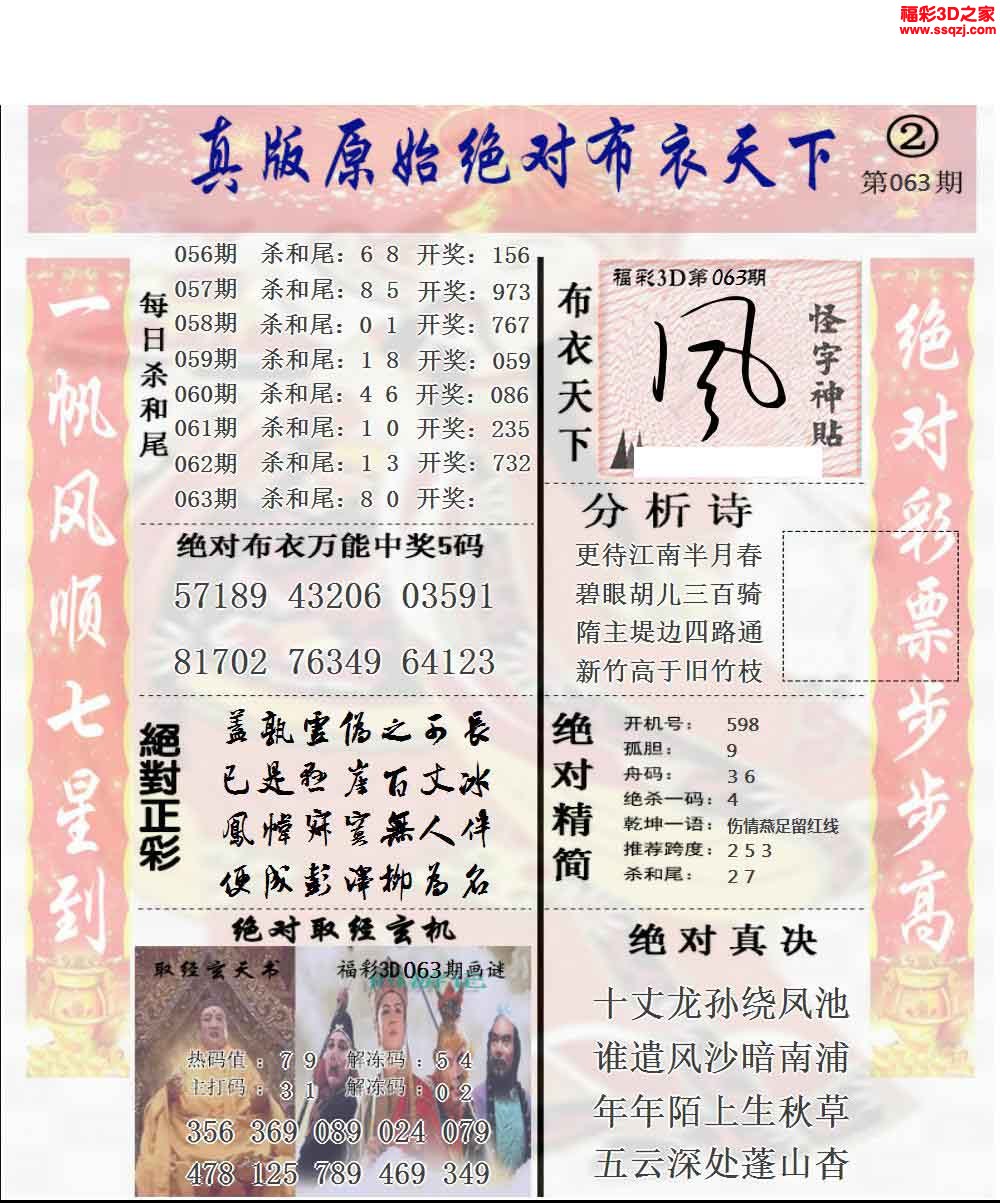 福彩3D之家
www.ssqzj.com
真版原始绝对布衣天下
②
第063期
一帆风顺七星到
每日杀和尾
056期 杀和尾：6 8 开奖：156
057期 杀和尾：8 5 开奖：973
058期 杀和尾：0 1 开奖：767
059期 杀和尾：1 8 开奖：059
060期 杀和尾：4 6 开奖：086
061期 杀和尾：1 0 开奖：235
062期 杀和尾：1 3 开奖：732
063期 杀和尾：8 0 开奖：
绝对布衣万能中奖5码
57189 43206 03591
81702 76349 64123
絕對正彩
盖孰雲偽之于長
已是懸崖百丈冰
鳳幃寂寞無人伴
便成彭澤柳為名
绝对取经玄机
取经玄天书
福彩3D063期画谜
热码值：7 9 解冻码：5 4
主打码：3 1 解冻码：0 2
356 369 089 024 079
478 125 789 469 349
布衣天下
福彩3D第063期
风
怪字神贴
分析诗
更待江南半月春
碧眼胡儿三百骑
隋主堤边四路通
新竹高于旧竹枝
绝对精简
开机号： 598
孤胆： 9
舟码： 3 6
绝杀一码：4
乾坤一语：伤情燕足留红线
推荐跨度：2 5 3
杀和尾： 2 7
绝对真决
十丈龙孙绕凤池
谁遣风沙暗南浦
年年陌上生秋草
五云深处蓬山杳
绝对彩票步步高